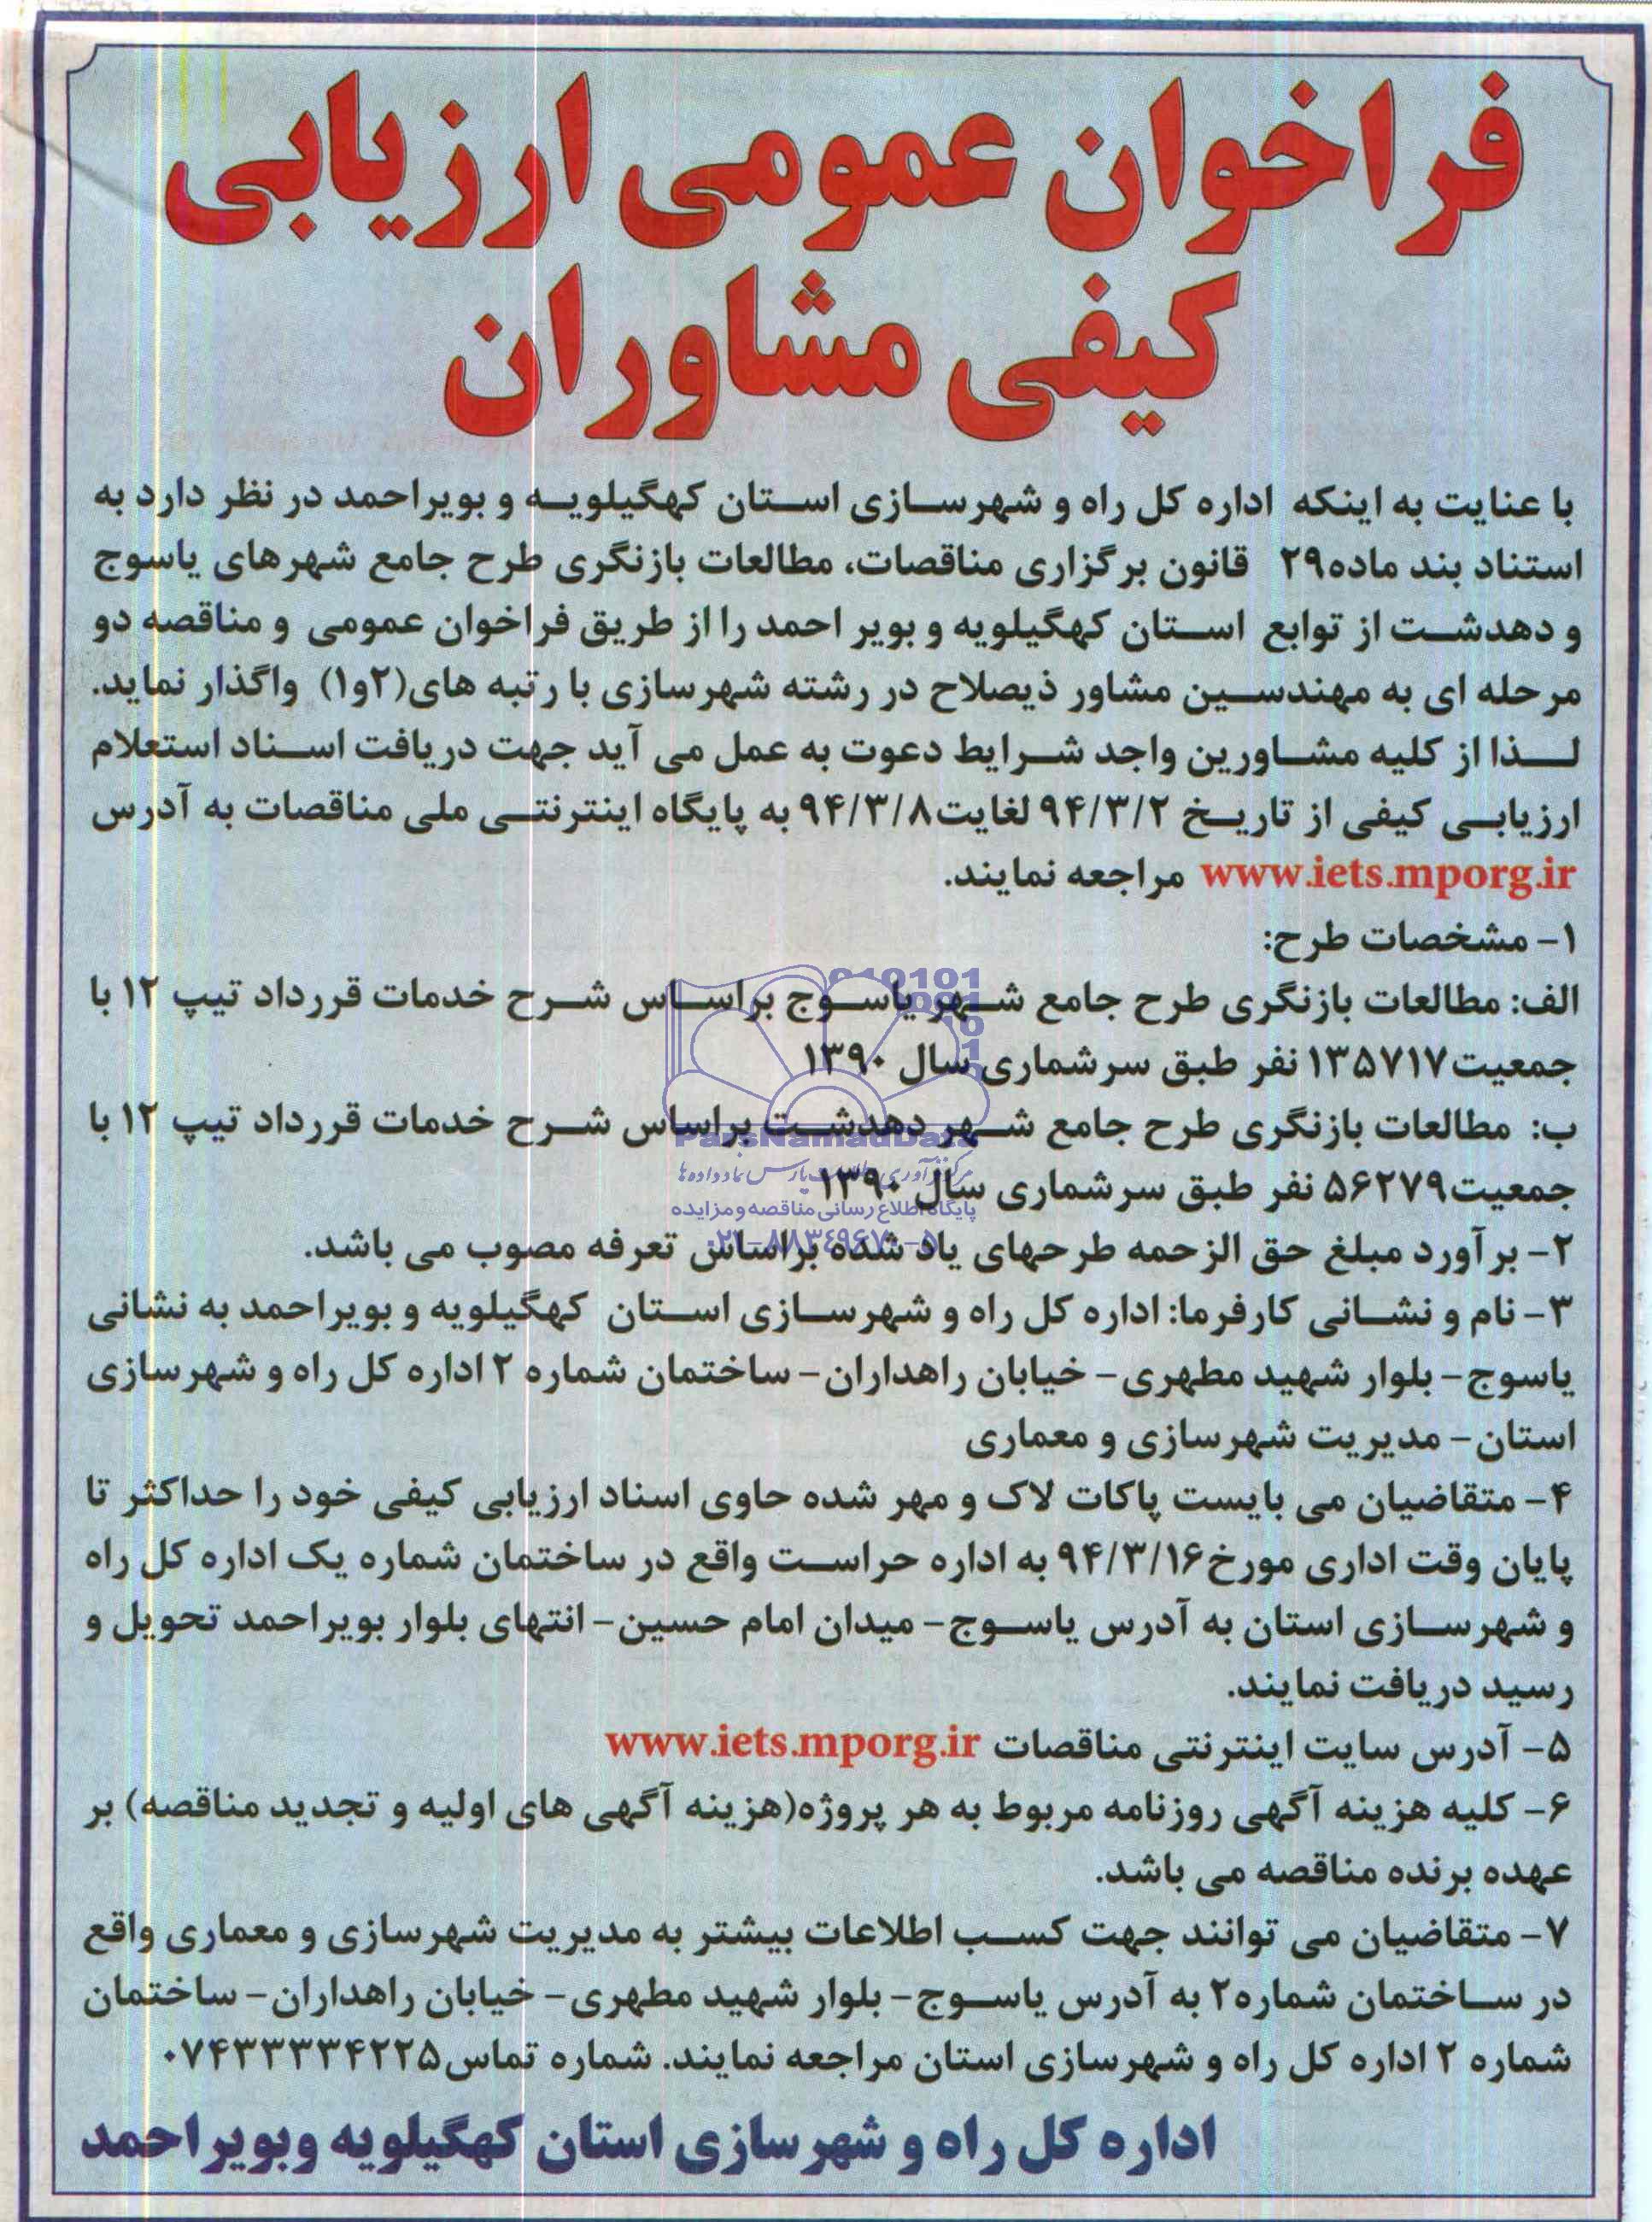 فراخوان عمومی ارزیابی
کیفی مشاوران
با عنایت به اینکه اداره کل راه و شهرسازی استان کهگیلویه و بویراحمد در نظر دارد به
استناد بند ماده۲۹ قانون برگزاری مناقصات، مطالعات بازنگری طرح جامع شهرهای یاسوج
و دهدشت از توابع استان کهگیلویه و بویر احمد را از طریق فراخوان عمومی و مناقصه دو
مرحله ای به مهندسین مشاور ذیصلاح در رشته شهرسازی با رتبه های(۲و۱) واگذار نماید.
لذا از کلیه مشاورین واجد شرایط دعوت به عمل می آید جهت دریافت اسناد استعلام
ارزیابی کیفی از تاریخ ۹۴/۳/۲ لغایت۹۴/۳/۸ به پایگاه اینترنتی ملی مناقصات به آدرس
www.iets.mporg.ir مراجعه نمایند.
۱- مشخصات طرح:
الف: مطالعات بازنگری طرح جامع شهر یاسوج براساس شرح خدمات قررداد تیپ ۱۲ با
جمعیت۱۳۵۷۱۷ نفر طبق سرشماری سال ۱۳۹۰
ب: مطالعات بازنگری طرح جامع شهر دهدشت براساس شرح خدمات قررداد تیپ ۱۲ با
جمعیت۵۶۲۷۹ نفر طبق سرشماری سال ۱۳۹۰
ParsNamadData
پایگاه اطلاع رسانی مناقصه و مزایده
۰۲۱-۸۸۳۴۹۶۷۰-۵
۲- برآورد مبلغ حق الزحمه طرحهای یاد شده براساس تعرفه مصوب می باشد.
۳- نام و نشانی کارفرما: اداره کل راه و شهرسازی استان کهگیلویه و بویراحمد به نشانی
یاسوج- بلوار شهید مطهری- خیابان راهداران- ساختمان شماره ۲ اداره کل راه و شهرسازی
استان- مدیریت شهرسازی و معماری
۴- متقاضیان می بایست پاکات لاک و مهر شده حاوی اسناد ارزیابی کیفی خود را حداکثر تا
پایان وقت اداری مورخ۹۴/۳/۱۶ به اداره حراست واقع در ساختمان شماره یک اداره کل راه
و شهرسازی استان به آدرس یاسوج- میدان امام حسین- انتهای بلوار بویراحمد تحویل و
رسید دریافت نمایند.
۵- آدرس سایت اینترنتی مناقصات www.iets.mporg.ir
۶- کلیه هزینه آگهی روزنامه مربوط به هر پروژه(هزینه آگهی های اولیه و تجدید مناقصه) بر
عهده برنده مناقصه می باشد.
۷- متقاضیان می توانند جهت کسب اطلاعات بیشتر به مدیریت شهرسازی و معماری واقع
در ساختمان شماره۲ به آدرس یاسوج- بلوار شهید مطهری- خیابان راهداران- ساختمان
شماره ۲ اداره کل راه و شهرسازی استان مراجعه نمایند. شماره تماس۰۷۴۳۳۳۳۴۲۲۵
اداره کل راه و شهرسازی استان کهگیلویه وبویراحمد